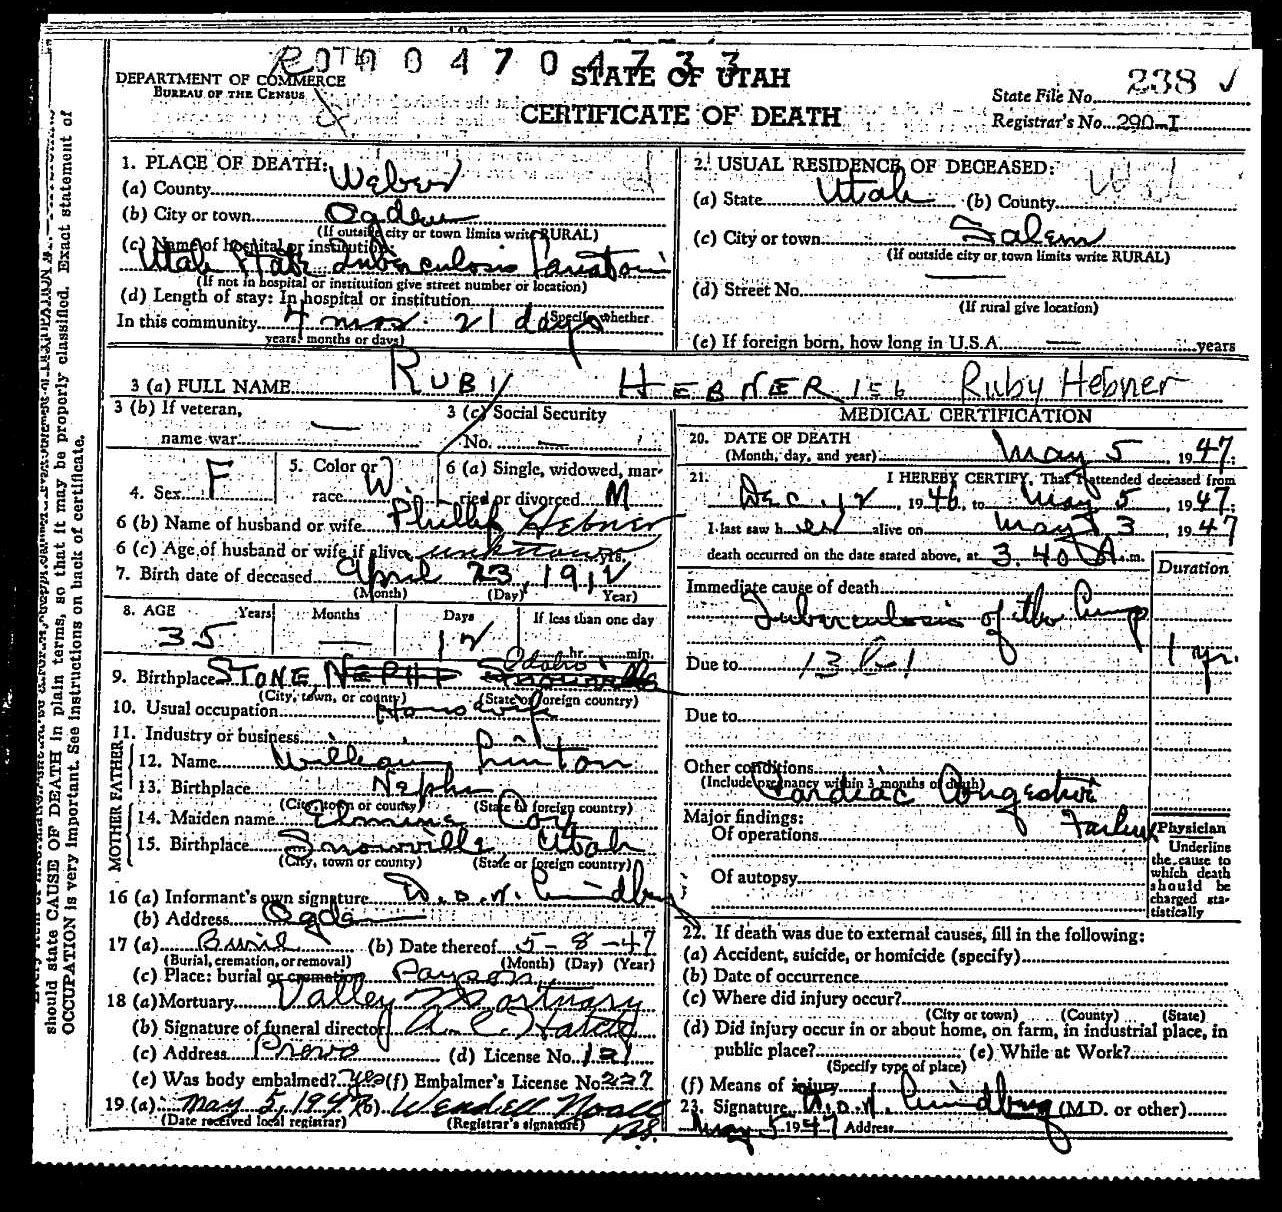 0 4 7 0 4 7 3 3
DEPARTMENT OF COMMERCE
BUREAU OF THE CENSUS
STATE OF UTAH
CERTIFICATE OF DEATH
State File No. 238 ✓
Registrar's No. 290-I
1. PLACE OF DEATH:
(a) County Weber
(b) City or town Ogden
(If outside city or town limits write RURAL)
(c) Name of hospital or institution:
Utah State Tuberculosis
(If not in hospital or institution give street number or location)
(d) Length of stay: In hospital or institution
(Specify whether
In this community 4 mos. 21 days
years, months or days)
2. USUAL RESIDENCE OF DECEASED:
(a) State Utah (b) County
(c) City or town Salem
(If outside city or town limits write RURAL)
(d) Street No. —
(If rural give location)
(e) If foreign born, how long in U.S.A. — years
3 (a) FULL NAME RUBY HEBNER 156 Ruby Hebner
3 (b) If veteran,
name war —
3 (c) Social Security
No. —
4. Sex F
5. Color or
race W
6 (a) Single, widowed, mar-
ried or divorced M
6 (b) Name of husband or wife Phillip Hebner
6 (c) Age of husband or wife if alive unknown yrs.
7. Birth date of deceased April 23, 1912
(Month) (Day) (Year)
8. AGE Years Months Days If less than one day
35 — 12 hr. min.
Idaho
9. Birthplace STONE NEPHI Snowville
(City, town, or county) (State or foreign country)
10. Usual occupation Housewife
11. Industry or business
FATHER
12. Name William Linton
13. Birthplace Nephi
(City, town or county) (State or foreign country)
MOTHER
14. Maiden name
15. Birthplace Snowville Utah
(City, town or county) (State or foreign country)
16 (a) Informant's own signature
(b) Address Ogden
17 (a) Burial (b) Date thereof 5-8-47
(Burial, cremation, or removal) (Month) (Day) (Year)
(c) Place: burial or cremation Payson
18 (a) Mortuary Valley Mortuary
(b) Signature of funeral director A. C. Hatch
(c) Address Provo (d) License No. 121
(e) Was body embalmed? yes (f) Embalmer's License No. 227
19 (a) May 5, 1947 (b) Wendell Noall
(Date received local registrar) (Registrar's signature)
MEDICAL CERTIFICATION
20. DATE OF DEATH
(Month, day, and year) May 5, 1947;
21. I HEREBY CERTIFY, That I attended deceased from
Dec. 12, 1946, to May 5, 1947;
I last saw her alive on May 3, 1947
death occurred on the date stated above, at 3.40 A.m.
Duration
Immediate cause of death
Tuberculosis of the Lungs
1 yr.
Due to
Due to
Other conditions
(Include pregnancy within 3 months of death)
Cardiac Congestive
Failure
Major findings:
Of operations
Of autopsy
Physician
Underline
the cause to
which death
should be
charged sta-
tistically
22. If death was due to external causes, fill in the following:
(a) Accident, suicide, or homicide (specify)
(b) Date of occurrence
(c) Where did injury occur?
(City or town) (County) (State)
(d) Did injury occur in or about home, on farm, in industrial place, in
public place? (e) While at Work?
(Specify type of place)
(f) Means of injury
23. Signature (M.D. or other)
May 5 1947 Address
should state CAUSE OF DEATH in plain terms, so that it may be properly classified. Exact statement of
OCCUPATION is very important. See instructions on back of certificate.